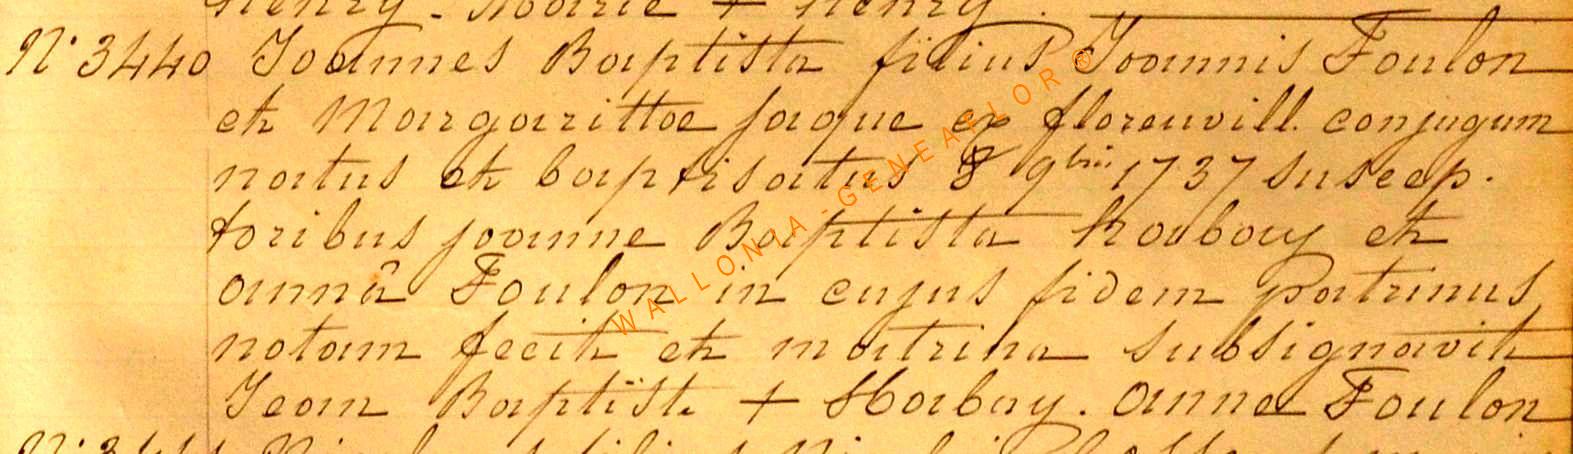 henry. Marie + henry.
N° 3440 Joannes Baptista filius Joannis Foulon
et Margarittae jaque ex florenvill. conjugum
natus et baptisatus 8 9bris 1737 suscep.
toribus joanne Baptista habay et
annâ Foulon in cujus fidem patrinus
notam fecit et matrina subsignavit
Jean Baptist. + Habay. anne Foulon
WALLONIA-GENEALLOR ©